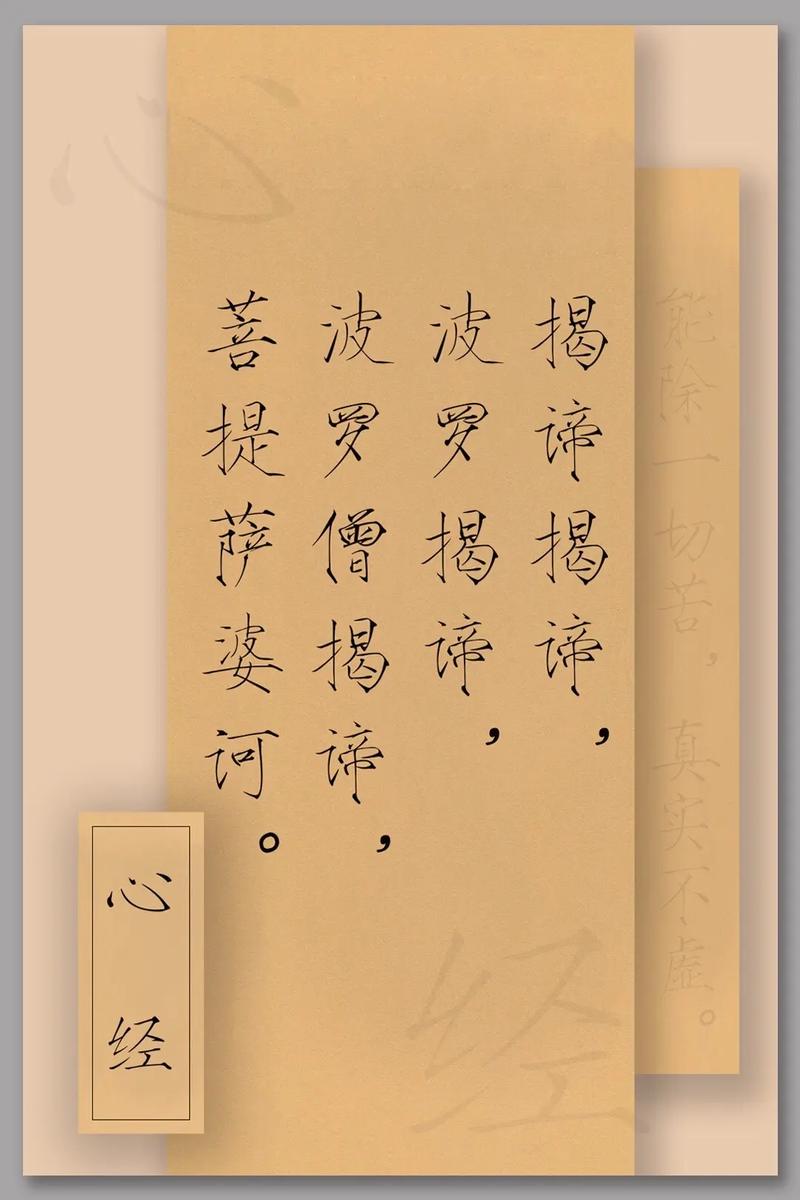 能除一切苦，真实不虚。
揭谛揭谛，
波罗揭谛，
波罗僧揭谛，
菩提萨婆诃。
心经
心
经